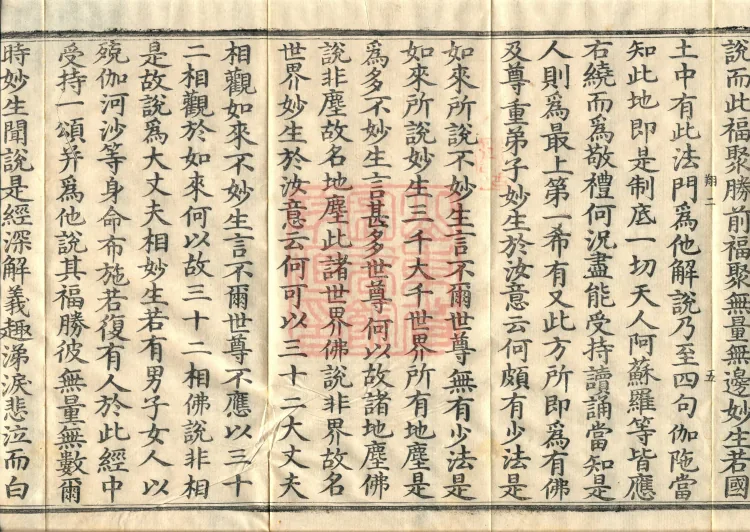 說而此福聚勝前福聚無量無邊妙生若國
翔二　五
土中有此法門爲他解說乃至四句伽陁當
知此地即是制底一切天人阿蘇羅等皆應
右繞而爲敬禮何況盡能受持讀誦當知是
人則爲最上第一希有又此方所即爲有佛
及尊重弟子妙生於汝意云何頗有少法是
如來所說不妙生言不爾世尊無有少法是
如來所說妙生三千大千世界所有地塵是
爲多不妙生言甚多世尊何以故諸地塵佛
說非塵故名地塵此諸世界佛說非界故名
世界妙生於汝意云何可以三十二大丈夫
相觀如來不妙生言不爾世尊不應以三十
二相觀於如來何以故三十二相佛說非相
是故說爲大丈夫相妙生若有男子女人以
殑伽河沙等身命布施若復有人於此經中
受持一頌并爲他說其福勝彼無量無數爾
時妙生聞說是經深解義趣涕淚悲泣而白